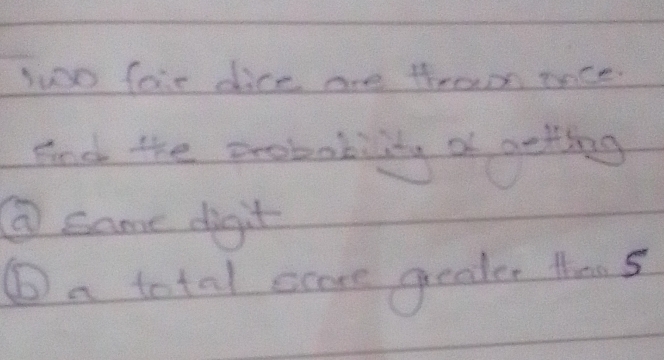 Two fair dice are thrown once.
find the probability of getting
(a) same digit
(b) a total score greater than 5